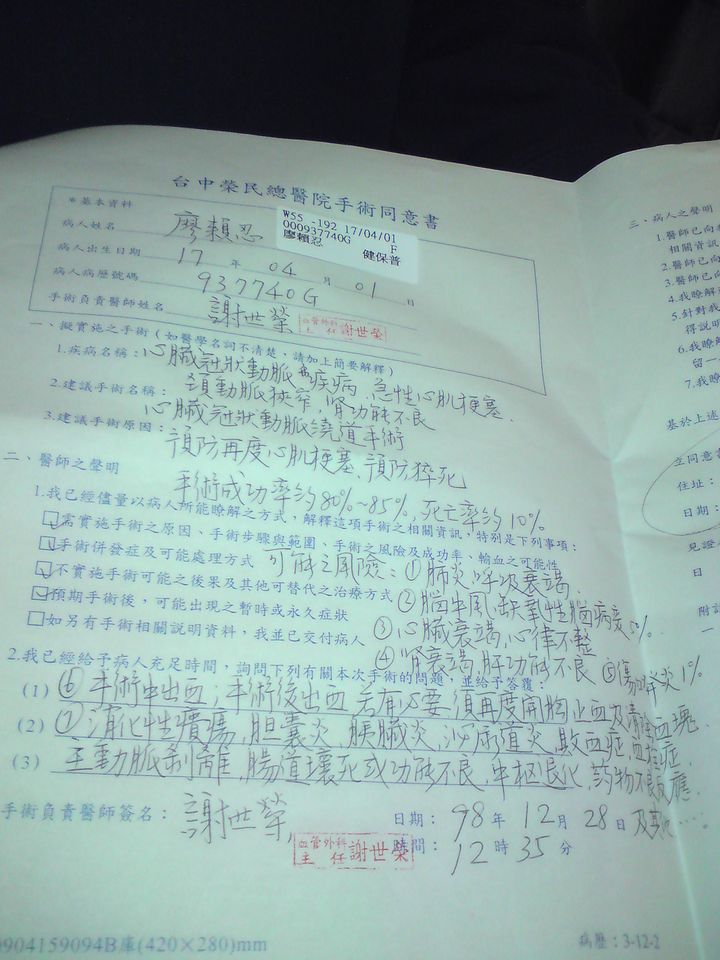 台中榮民總醫院手術同意書
*基本資料
病人姓名 廖賴忍
W55 -192 17/04/01
000937740G F
廖賴忍 健保普
病人出生日期 17 年 04 月 01 日
病人病歷號碼 937740G
手術負責醫師姓名 謝世榮 血管外科主任 謝世榮
一、擬實施之手術(如醫學名詞不清楚,請加上簡要解釋)
1.疾病名稱:心臟冠狀動脈疾病,急性心肌梗塞.
頸動脈狹窄,腎功能不良
2.建議手術名稱:心臟冠狀動脈繞道手術
3.建議手術原因:預防再度心肌梗塞,預防猝死
二、醫師之聲明
手術成功率約80%~85%,死亡率約10%
1.我已經儘量以病人所能瞭解之方式,解釋這項手術之相關資訊,特別是下列事項:
需實施手術之原因、手術步驟與範圍、手術之風險及成功率、輸血之可能性
手術併發症及可能處理方式 可能之風險:①肺炎,呼吸衰竭
不實施手術可能之後果及其他可替代之治療方式 ②腦中風,缺氧性腦病變5%.
預期手術後,可能出現之暫時或永久症狀 ③心臟衰竭,心律不整
如另有手術相關說明資料,我並已交付病人 ④腎衰竭,肝功能不良 ⑤傷口發炎1%
2.我已經給予病人充足時間,詢問下列有關本次手術的問題,並給予答覆:
(1) ⑥手術中出血;手術後出血 若有必要,須再度開胸止血及清除血塊
(2) ⑦消化性潰瘍,膽囊炎,胰臟炎,泌尿道炎,敗血症,血栓症,
(3) 主動脈剝離,腸道壞死或功能不良,中樞退化,藥物不良反應,
及其他....
手術負責醫師簽名:謝世榮
血管外科主任 謝世榮
日期:98 年 12 月 28 日
時間:12 時 35 分
0904159094B庫(420×280)mm
病歷:3-12-2
三、病人之聲明
1.醫師已向
相關資訊
2.醫師已向
3.醫師已向
4.我瞭解
5.針對我
得說明
6.我瞭解
留一
7.我瞭
基於上述
立同意書
住址:
日期:
見證
日
附註
一